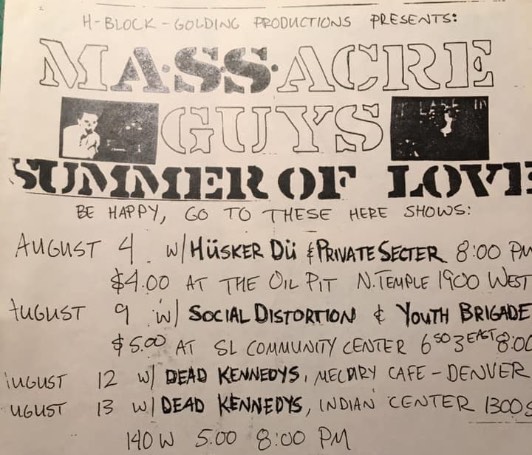 H-BLOCK-GOLDING PRODUCTIONS PRESENTS:
MASSACRE
GUYS
SUMMER OF LOVE
BE HAPPY, GO TO THESE HERE SHOWS:
AUGUST 4 w/ HÜSKER DÜ & PRIVATE SECTER 8:00 PM
$4.00 AT THE OIL PIT N.TEMPLE 1900 WEST
AUGUST 9 w/ SOCIAL DISTORTION & YOUTH BRIGADE
$5.00 AT SL COMMUNITY CENTER 6 SO 3 EAST 8:00
AUGUST 12 w/ DEAD KENNEDYS, CAFE - DENVER
UGUST 13 w/ DEAD KENNEDYS, INDIAN CENTER 1300 S
140 W 5.00 8:00 PM